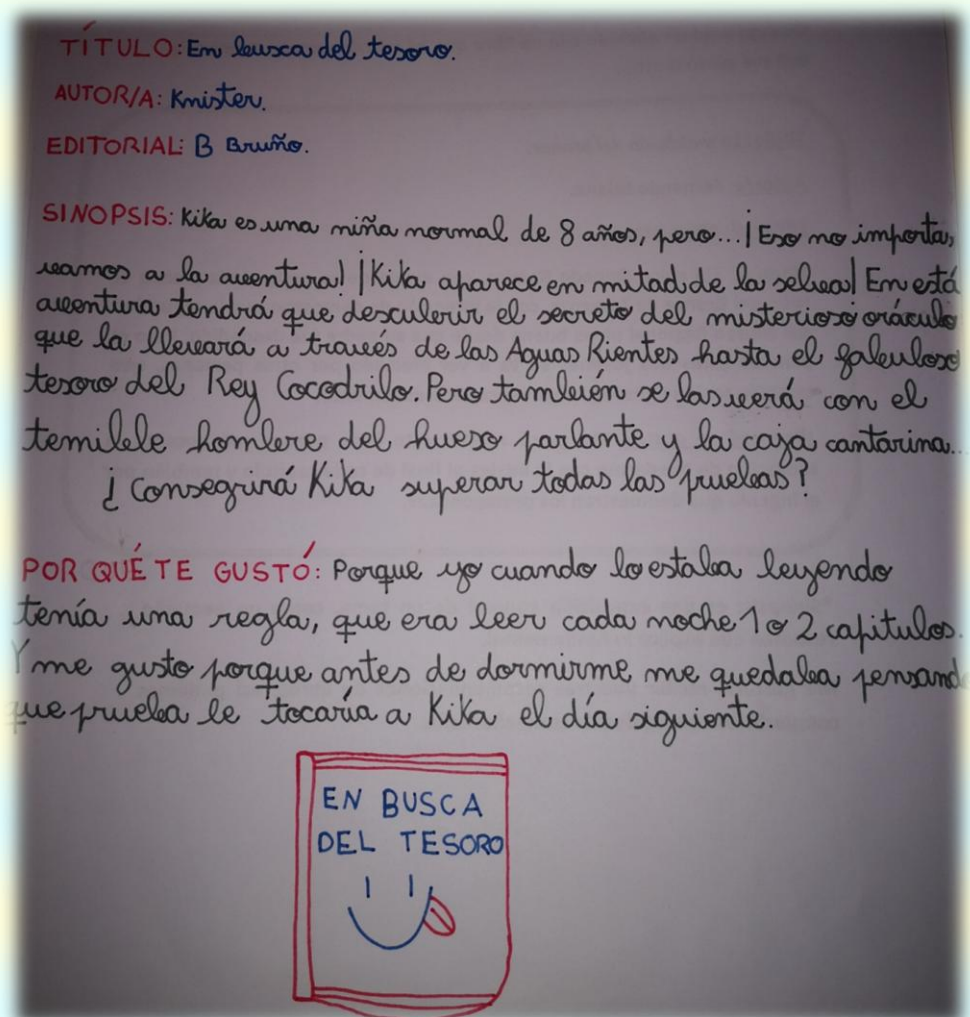 TÍTULO: En busca del tesoro.
AUTOR/A: Knister.
EDITORIAL: B Bruño.
SINOPSIS: Kika es una niña normal de 8 años, pero... ¡Eso no importa,
vamos a la aventura! ¡Kika aparece en mitad de la selva! En está
aventura tendrá que descubrir el secreto del misterioso oráculo
que la llevará a través de las Aguas Rientes hasta el fabuloso
tesoro del Rey Cocodrilo. Pero también se las verá con el
temible hombre del hueso parlante y la caja cantarina...
¿Conseguirá Kika superar todas las pruebas?
POR QUÉ TE GUSTÓ: Porque yo cuando lo estaba leyendo
tenía una regla, que era leer cada noche 1 o 2 capitulos.
Y me gusto porque antes de dormirme me quedaba pensando
que prueba le tocaría a Kika el día siguiente.
EN BUSCA
DEL TESORO